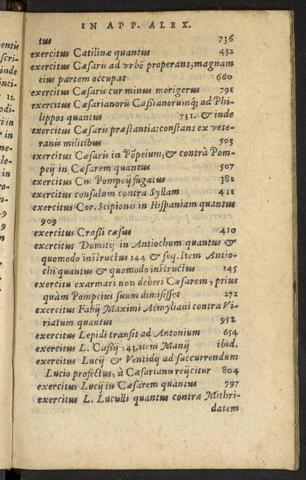 IN APP. ALEX.
tus 736
exercitus Catilinæ quantus 452
exercitus Cæsaris ad urbē properans, magnam
eius partem occupat 660
exercitus Cæsaris cur minus morigerus 791
exercitus Cæsarianorū Caßianorumq; ad Phi-
lippos quantus 751. & inde
exercitus Cæsaris præstantia: constans ex vete-
ranis militibus 503
exercitus Cæsaris in Pōpeium, & contrà Pom-
peij in Cæsarem quantus 507
exercitus Cn. Pompeij fugatus 381
exercitus consulum contra Syllam 411
exercitus Cor. Scipionis in Hispaniam quantus
909
exercitus Craßi cæsus 410
exercitus Domitij in Antiochum quantus &
quomodo instructus 144. & seq. Item Antio-
chi quantus & quomodo instructus 145
exercitū exarmari non deberi Cæsarem, prius
quàm Pompeius suum dimisisset 272
exercitus Fabij Maximi Aemyliani contra Vi-
riatum quantus 952
exercitus Lepidi transit ad Antonium 654
exercitus L. Caßij 241. item Manij ibid.
exercitus Lucij & Ventidij ad succurrendum
Lucio profectus, à Cæsarianis reijcitur 804
exercitus Lucij in Cæsarem quantus 797
exercitus L. Luculli quantus contra Mithri-
datem